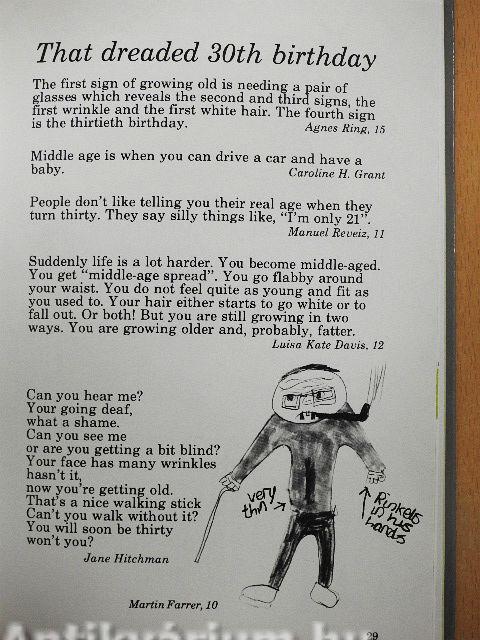 That dreaded 30th birthday
The first sign of growing old is needing a pair of
glasses which reveals the second and third signs, the
first wrinkle and the first white hair. The fourth sign
is the thirtieth birthday.
Agnes Ring, 15
Middle age is when you can drive a car and have a
baby.
Caroline H. Grant
People don't like telling you their real age when they
turn thirty. They say silly things like, "I'm only 21".
Manuel Reveiz, 11
Suddenly life is a lot harder. You become middle-aged.
You get "middle-age spread". You go flabby around
your waist. You do not feel quite as young and fit as
you used to. Your hair either starts to go white or to
fall out. Or both! But you are still growing in two
ways. You are growing older and, probably, fatter.
Luisa Kate Davis, 12
Can you hear me?
Your going deaf,
what a shame.
Can you see me
or are you getting a bit blind?
Your face has many wrinkles
hasn't it,
now you're getting old.
That's a nice walking stick
Can't you walk without it?
You will soon be thirty
won't you?
Jane Hitchman
very
thin
Rinkels
in his
hands
Martin Farrer, 10
29
Antikvárium.hu